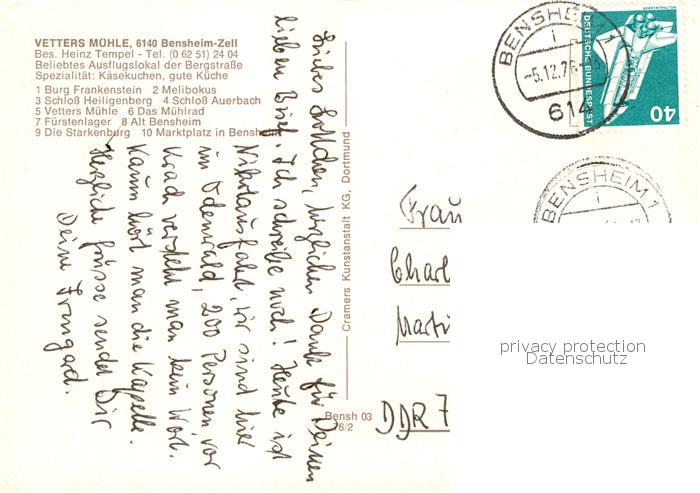 VETTERS MÜHLE, 6140 Bensheim-Zell
Bes. Heinz Tempel - Tel. (0 62 51) 24 04
Beliebtes Ausflugslokal der Bergstraße
Spezialität: Käsekuchen, gute Küche
1 Burg Frankenstein 2 Melibokus
3 Schloß Heiligenberg 4 Schloß Auerbach
5 Vetters Mühle 6 Das Mühlrad
7 Fürstenlager 8 Alt Bensheim
9 Die Starkenburg 10 Marktplatz in Bensheim
Liebes Lottchen, herzlichen Dank für Deinen
lieben Brief. Ich schreibe noch! Heute ist
Nikolausfahrt, wir sind hier
im Odenwald, 200 Personen, vor
Krach versteht man kein Wort.
Kaum hört man die Kapelle.
Herzliche Grüsse sendet Dir
Deine Irmgard.
Cramers Kunstanstalt KG, Dortmund
Bensh 03
6/2
BENSHEIM 1
-5.12.76
614
DEUTSCHE BUNDESPOST
40
BENSHEIM 1
Frau
Charl
Marti
DDR 7
privacy protection
Datenschutz